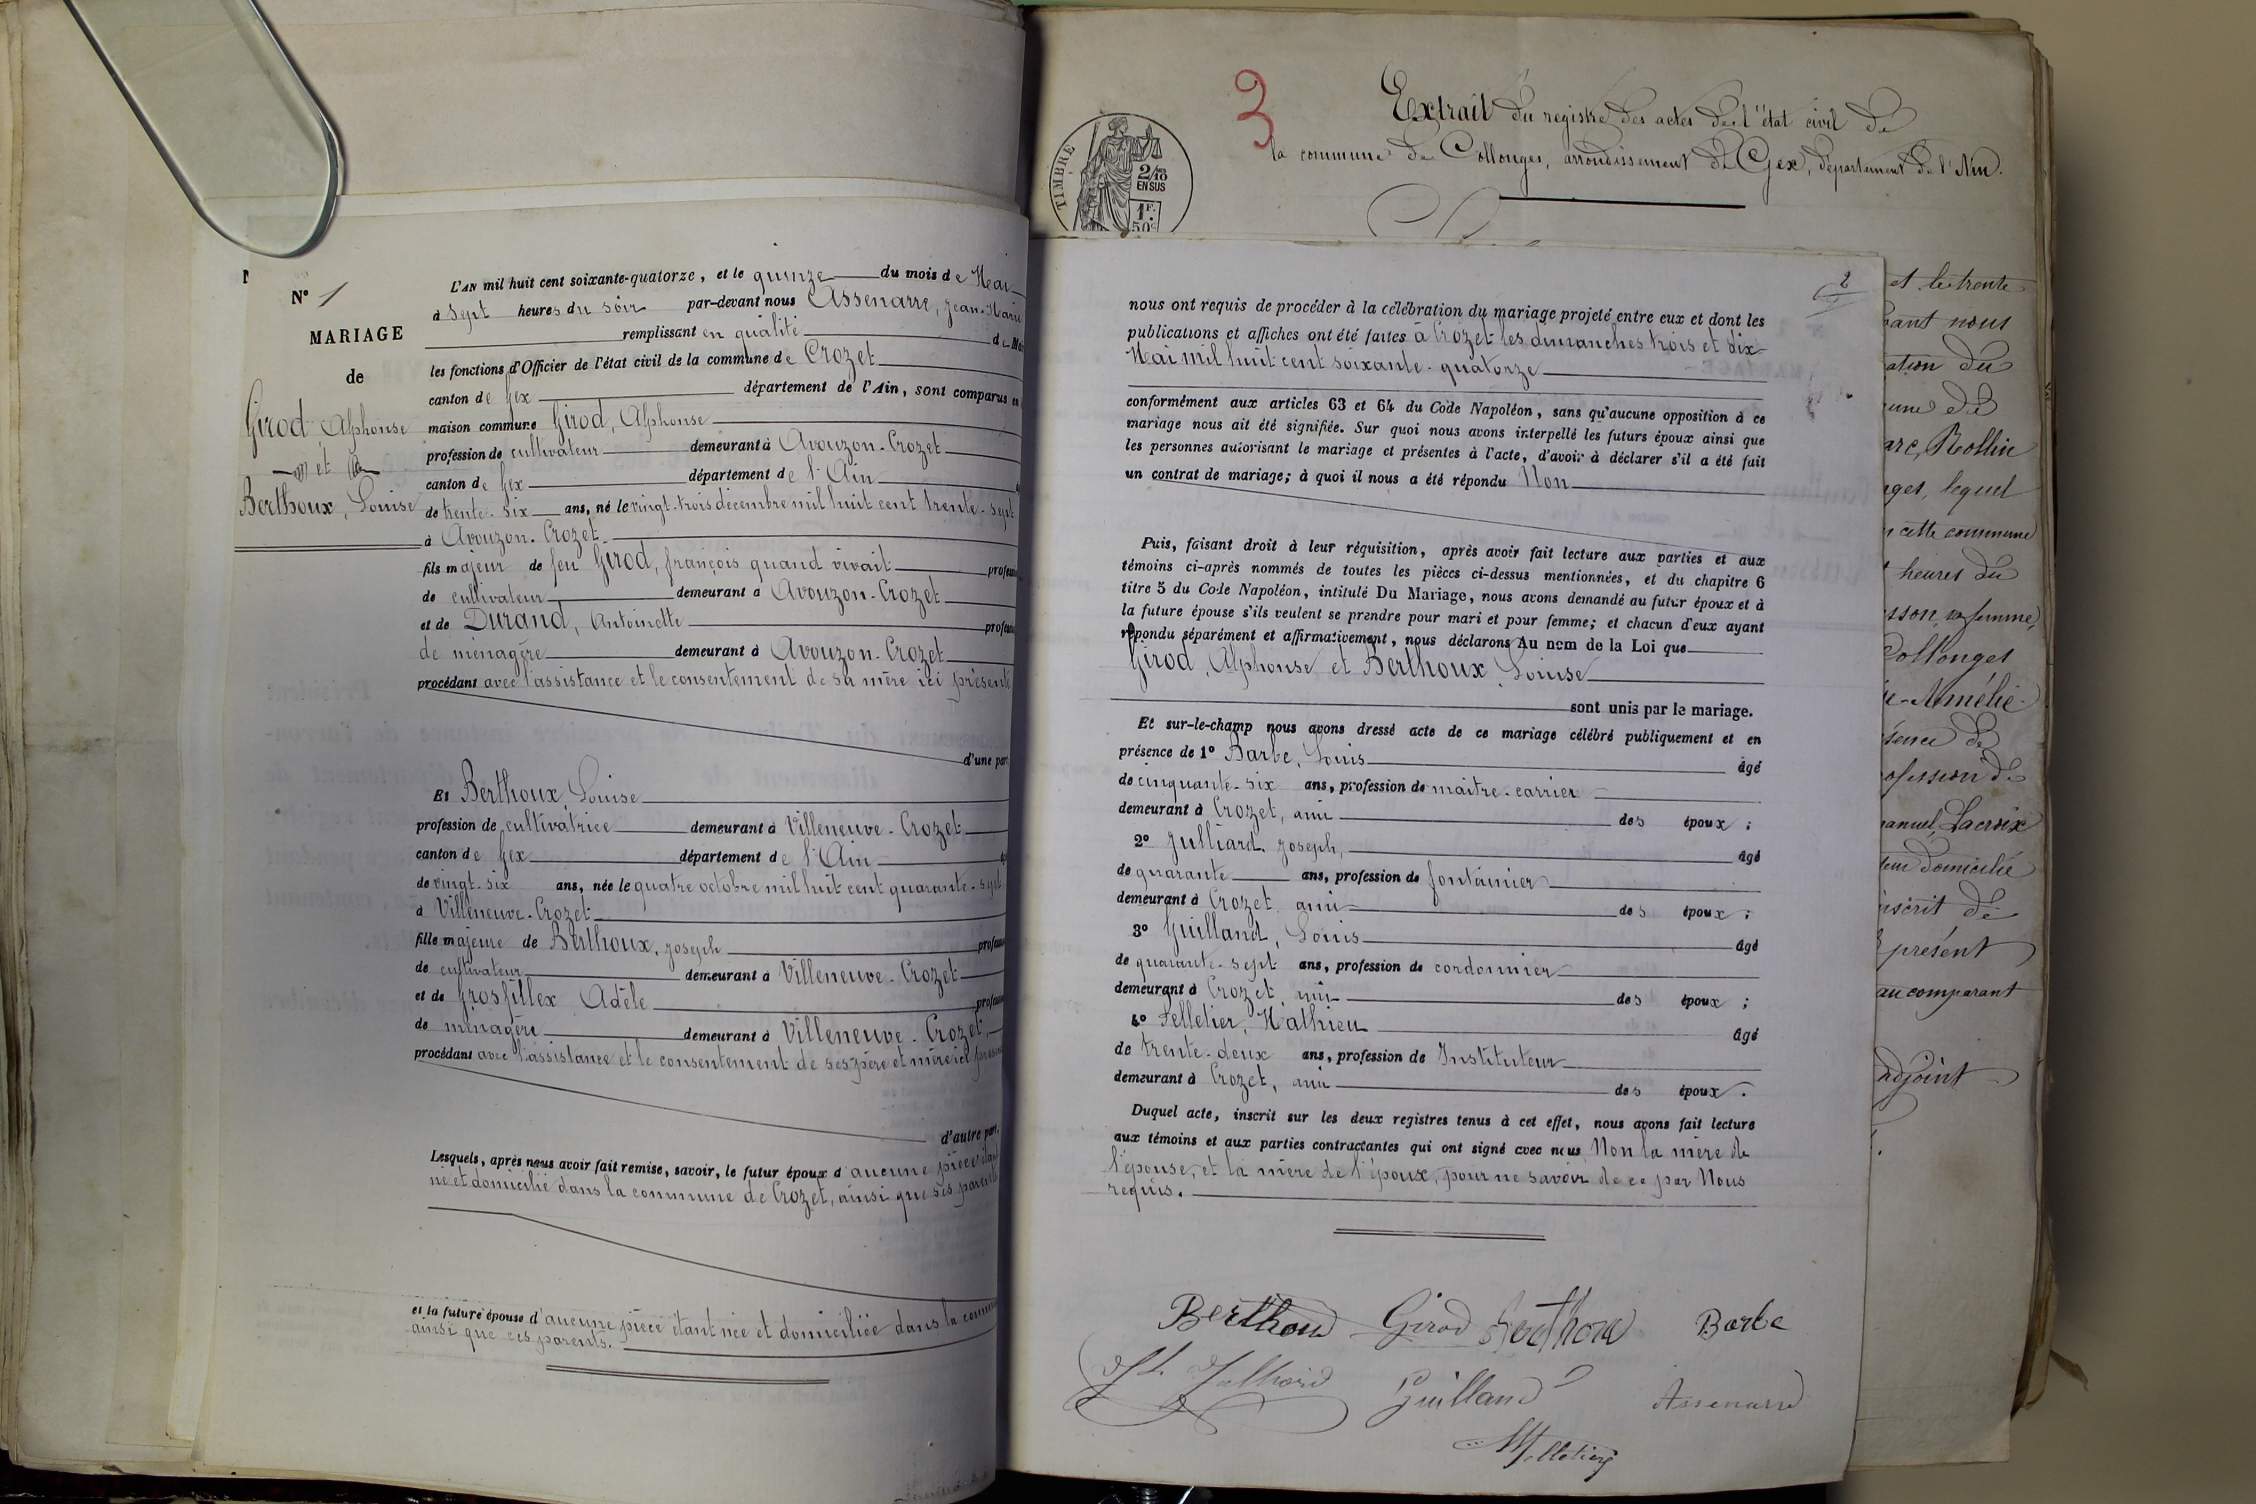 N° 1
MARIAGE
de
Girod, Alphonse
et
Berthoux, Louise
L'AN mil huit cent soixante-quatorze, et le quinze du mois de Mai
à sept heures du soir par-devant nous Assenarre, Jean-Marie
remplissant en qualité de
les fonctions d'Officier de l'état civil de la commune de Crozet
canton de Gex département de l'Ain, sont comparus en
maison commune Girod, Alphonse
profession de cultivateur demeurant à Avouzon-Crozet
canton de Gex département de l'Ain
de trente-six ans, né le vingt-trois décembre mil huit cent trente-sept
à Avouzon-Crozet
fils majeur de feu Girod, françois quand vivait
de cultivateur demeurant à Avouzon-Crozet
et de Durand, Antoinette
de ménagère demeurant à Avouzon-Crozet
procédant avec l'assistance et le consentement de sa mère ici présente
d'une part
Et Berthoux, Louise
profession de cultivatrice demeurant à Villeneuve-Crozet
canton de Gex département de l'Ain
de vingt-six ans, née le quatre octobre mil huit cent quarante-sept
à Villeneuve-Crozet
fille majeure de Berthoux, Joseph
de cultivateur demeurant à Villeneuve-Crozet
et de Grosfillex Adèle
de ménagère demeurant à Villeneuve-Crozet
procédant avec l'assistance et le consentement de ses père et mère ici
d'autre part.
Lesquels, après nous avoir fait remise, savoir, le futur époux d'aucune pièce étant
né et domicilié dans la commune de Crozet, ainsi que ses parents
et la future épouse d'aucune pièce étant née et domiciliée dans la
ainsi que ses parents.
3
Extrait du registre des actes de l'état civil de
la commune de Collonges, arrondissement de Gex, département de l'Ain.
TIMBRE
2/10
EN SUS
1F.
50c
2
nous ont requis de procéder à la célébration du mariage projeté entre eux et dont les
publications et affiches ont été faites à Crozet les dimanches trois et dix
Mai mil huit cent soixante-quatorze
conformément aux articles 63 et 64 du Code Napoléon, sans qu'aucune opposition à ce
mariage nous ait été signifiée. Sur quoi nous avons interpellé les futurs époux ainsi que
les personnes autorisant le mariage et présentes à l'acte, d'avoir à déclarer s'il a été fait
un contrat de mariage; à quoi il nous a été répondu Non
Puis, faisant droit à leur réquisition, après avoir fait lecture aux parties et aux
témoins ci-après nommés de toutes les pièces ci-dessus mentionnées, et du chapitre 6
titre 5 du Code Napoléon, intitulé Du Mariage, nous avons demandé au futur époux et à
la future épouse s'ils veulent se prendre pour mari et pour femme; et chacun d'eux ayant
répondu séparément et affirmativement, nous déclarons Au nom de la Loi que
Girod, Alphonse et Berthoux, Louise
sont unis par le mariage.
Et sur-le-champ nous avons dressé acte de ce mariage célébré publiquement et en
présence de 1° Barbe, Louis âgé
de cinquante-six ans, profession de maître-carrier
demeurant à Crozet, ami des époux;
2° Julliard, Joseph, âgé
de quarante ans, profession de fontainier
demeurant à Crozet, ami des époux;
3° Guilland, Louis âgé
de quarante-sept ans, profession de cordonnier
demeurant à Crozet, ami des époux;
4° Pelletier, Mathieu âgé
de trente-deux ans, profession de Instituteur
demeurant à Crozet, ami des époux.
Duquel acte, inscrit sur les deux registres tenus à cet effet, nous avons fait lecture
aux témoins et aux parties contractantes qui ont signé avec nous Non la mère de
l'épouse, et la mère de l'époux, pour ne savoir de ce par Nous
requis.
Berthoud Girod Berthoud Barbe
Julliard Guilland Assenarre
Mpelletier
et le trente
vant nous
ation du
une de
arc, Rollin
ges, lequel
cette commune
heures du
sson, sa femme,
Collonges
-Amélie
sence de
ofession de
anuel, Lacroix
domicilié
nscrit de
présent
au comparant
adjoint